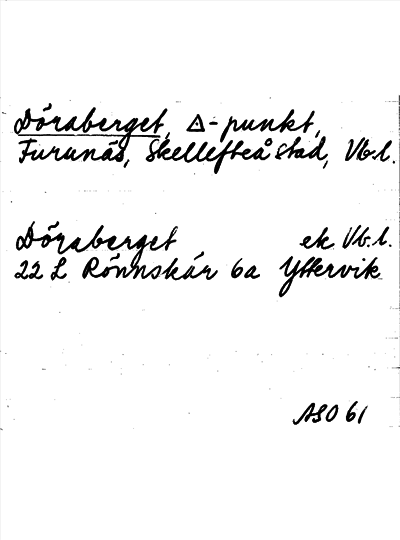 Döraberget, △-punkt,
Furunäs, Skellefteå stad, Vb.l.
Döraberget ek. Vb.l.
22 L Rönnskär 6a Yttervik
ASO 61